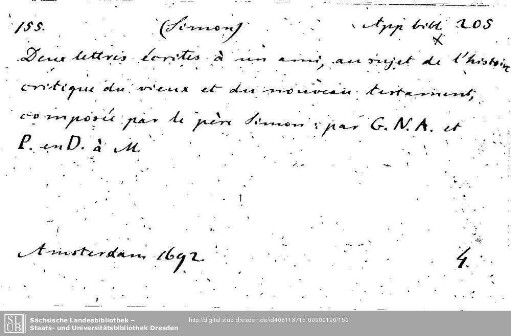 155. (Simon) App bibl. 205
Deux lettres écrites à un ami, au sujet de l'histoire
critique du vieux et du nouveau testament,
composée par le père Simon: par G. N. A. et
P. en D. à M.
Amsterdam 1692 4.
Sächsische Landesbibliothek –
Staats- und Universitätsbibliothek Dresden